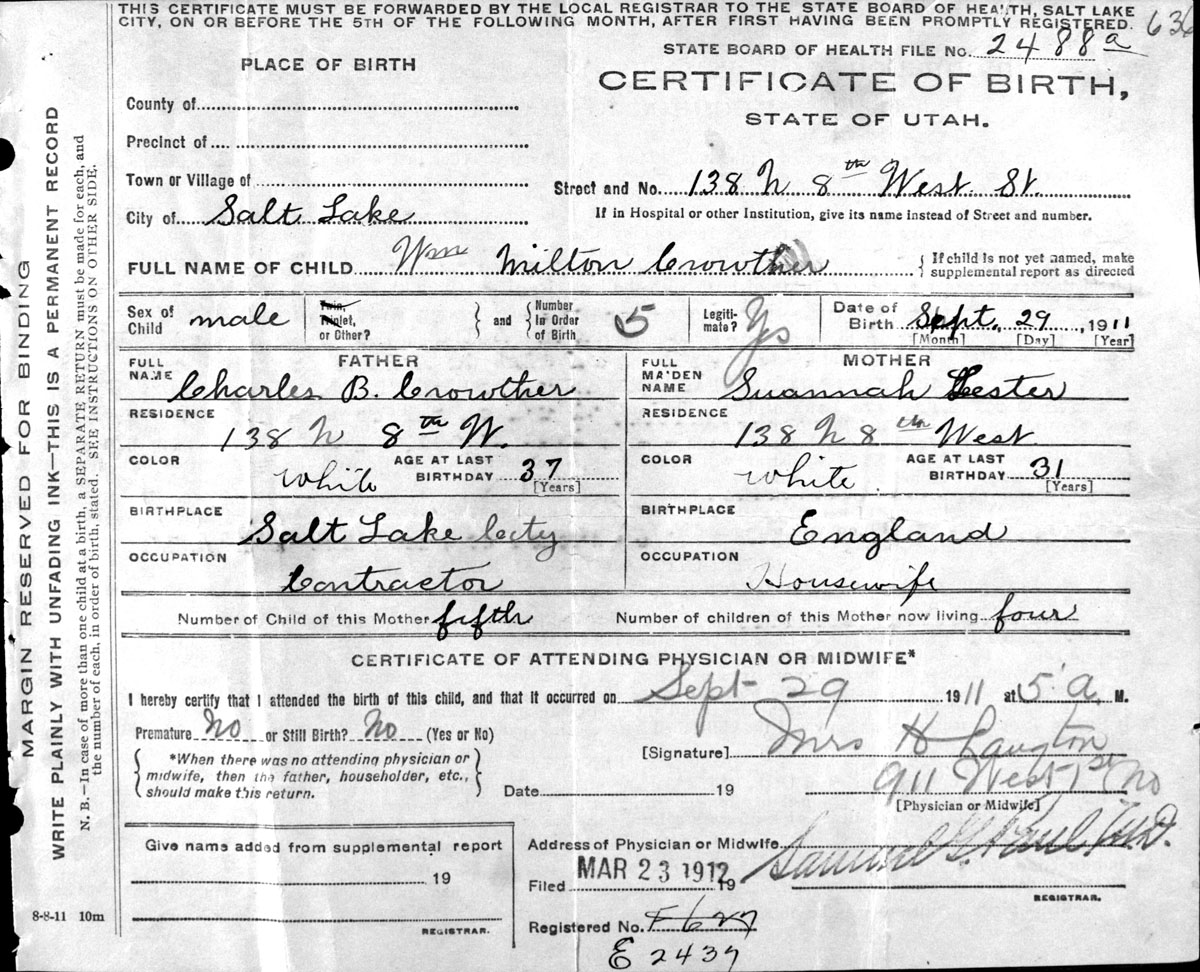 THIS CERTIFICATE MUST BE FORWARDED BY THE LOCAL REGISTRAR TO THE STATE BOARD OF HEALTH, SALT LAKE
CITY, ON OR BEFORE THE 5TH OF THE FOLLOWING MONTH, AFTER FIRST HAVING BEEN PROMPTLY REGISTERED. 636
STATE BOARD OF HEALTH FILE No. 2488a
PLACE OF BIRTH
CERTIFICATE OF BIRTH,
STATE OF UTAH.
County of
Precinct of
Town or Village of
Street and No. 138 N 8th West St.
City of Salt Lake
If in Hospital or other Institution, give its name instead of Street and number.
FULL NAME OF CHILD Wm Milton Crowther
{ If child is not yet named, make
supplemental report as directed
Sex of Child male
Twin, Triplet, or Other?
} and { Number In Order of Birth 5
Legiti-mate? Ys
Date of Birth Sept. 29, 1911
[Month] [Day] [Year]
FATHER
FULL NAME Charles B. Crowther
RESIDENCE
138 N 8th W.
COLOR white
AGE AT LAST BIRTHDAY 37
[Years]
BIRTHPLACE
Salt Lake City
OCCUPATION
Contractor
MOTHER
FULL MAIDEN NAME Suannah Lester
RESIDENCE
138 N 8th West
COLOR white
AGE AT LAST BIRTHDAY 31
[Years]
BIRTHPLACE
England
OCCUPATION
Housewife
Number of Child of this Mother fifth
Number of children of this Mother now living four
CERTIFICATE OF ATTENDING PHYSICIAN OR MIDWIFE*
I hereby certify that I attended the birth of this child, and that it occurred on Sept 29 1911 at 5 a. M.
Premature No or Still Birth? No (Yes or No)
[Signature] Mrs H Langton
*When there was no attending physician or
midwife, then the father, householder, etc.,
should make this return.
911 West 1st No
Date 19
[Physician or Midwife]
Give name added from supplemental report
19
REGISTRAR.
Address of Physician or Midwife
Samuel G. Paul M.D.
Filed MAR 23 1912 19
REGISTRAR.
Registered No. F627
E 2437
8-8-11 10m
MARGIN RESERVED FOR BINDING
WRITE PLAINLY WITH UNFADING INK—THIS IS A PERMANENT RECORD
N. B.—In case of more than one child at a birth, a SEPARATE RETURN must be made for each, and
the number of each, in order of birth, stated. SEE INSTRUCTIONS ON OTHER SIDE.